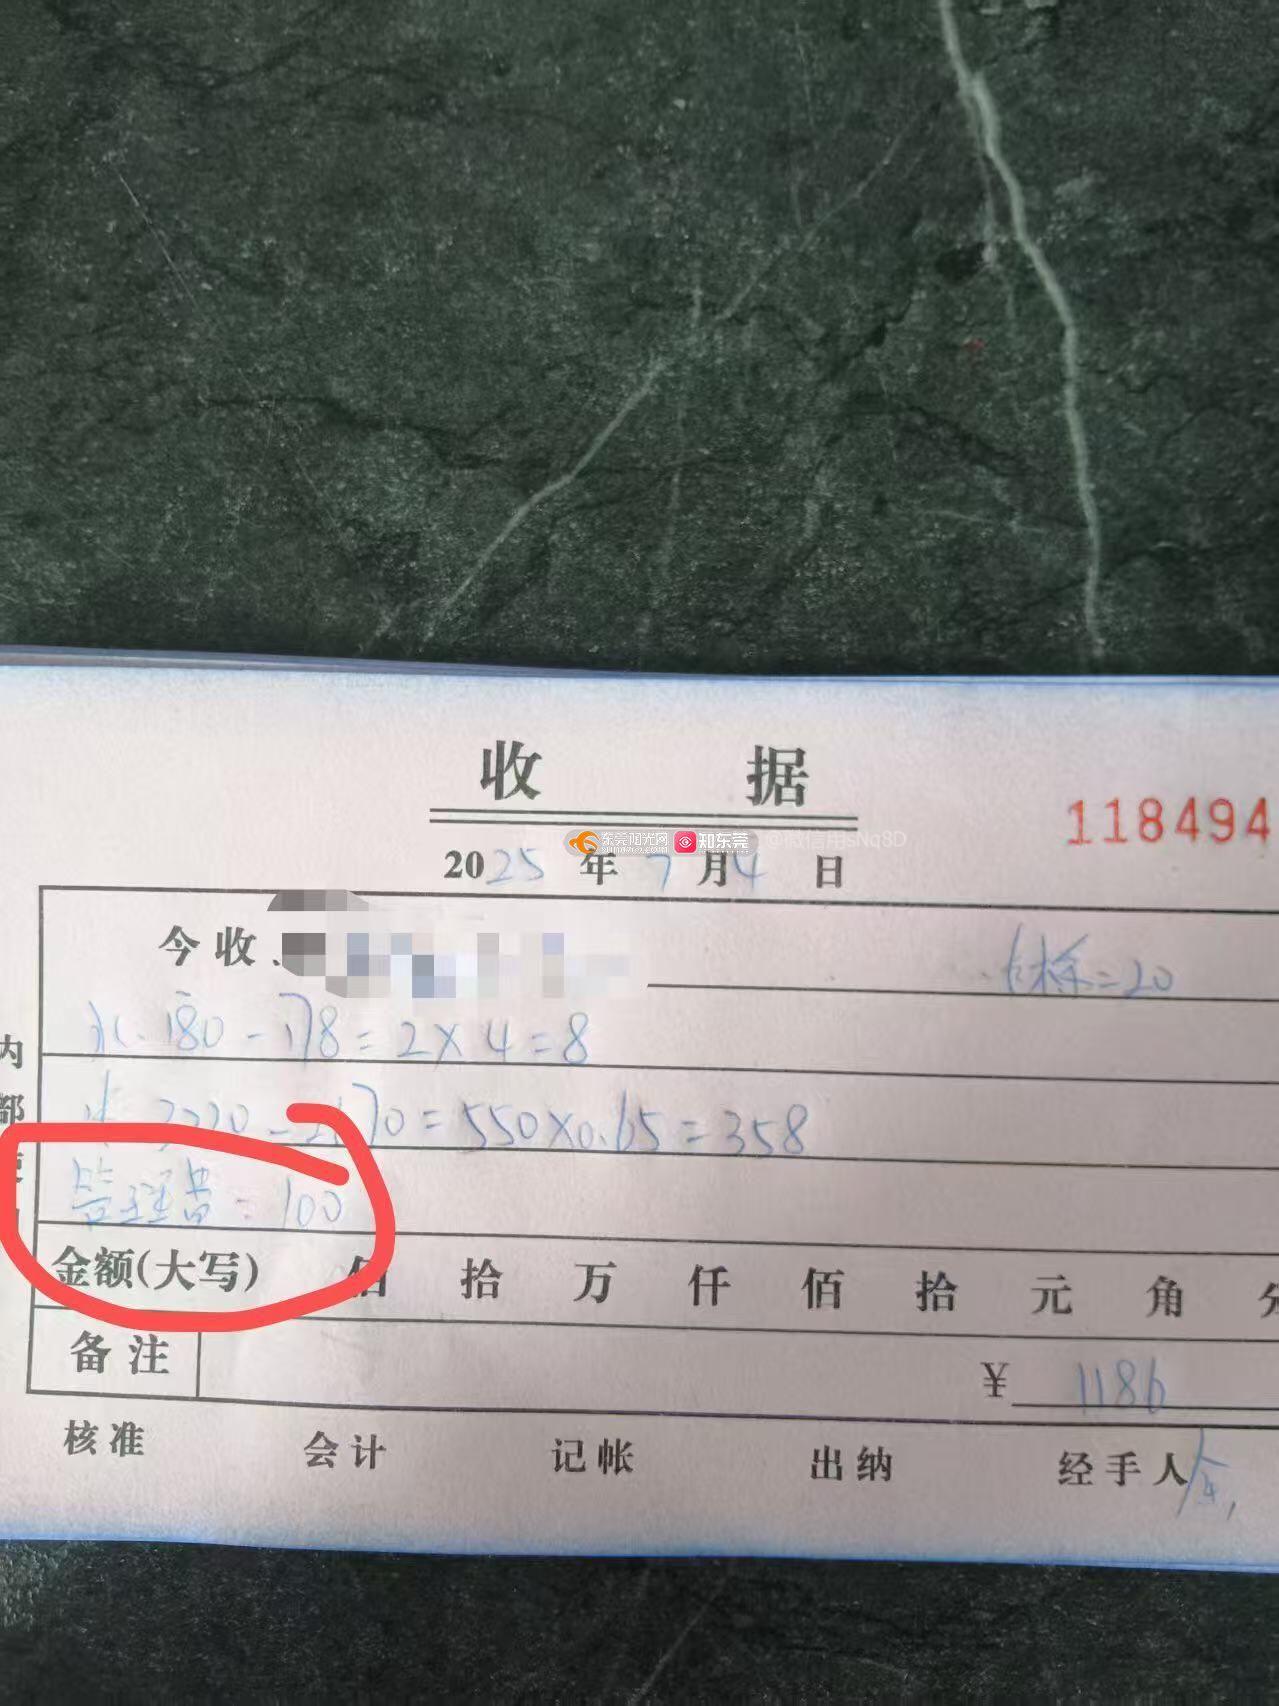 收 据
118494
东莞阳光网 知东莞 @微信用sNq8D
SUN0769.COM
2025 年 7 月 4 日
今收 =20
水 180-178=2×4=8
-2670=550×0.65=358
管理费=100
金额(大写) 佰 拾 万 仟 佰 拾 元 角 分
备注
¥ 1186
核准 会计 记帐 出纳 经手人
内
部